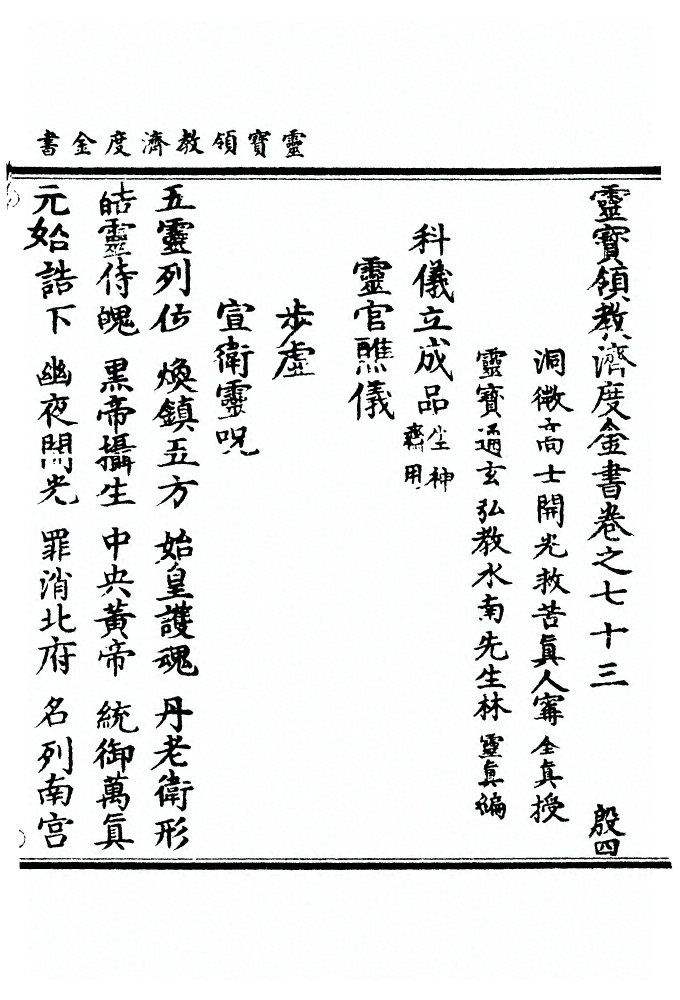 靈寶領教濟度金書
靈寶領教濟度金書卷之七十三 殷四
洞微高士開光救苦眞人甯全真授
靈寶通玄弘教水南先生林靈眞編
科儀立成品坐神齋用
靈官醮儀
步虛
宣衛靈呪
五靈列位 煥鎮五方 始皇護魂 丹老衛形
皓靈侍魄 黑帝攝生 中央黃帝 統御萬眞
元始誥下 幽夜開光 罪消北府 名列南宮